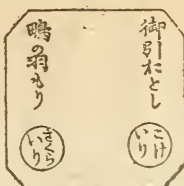 御引おとし
こけいり
鴨の羽もり
さくらいり